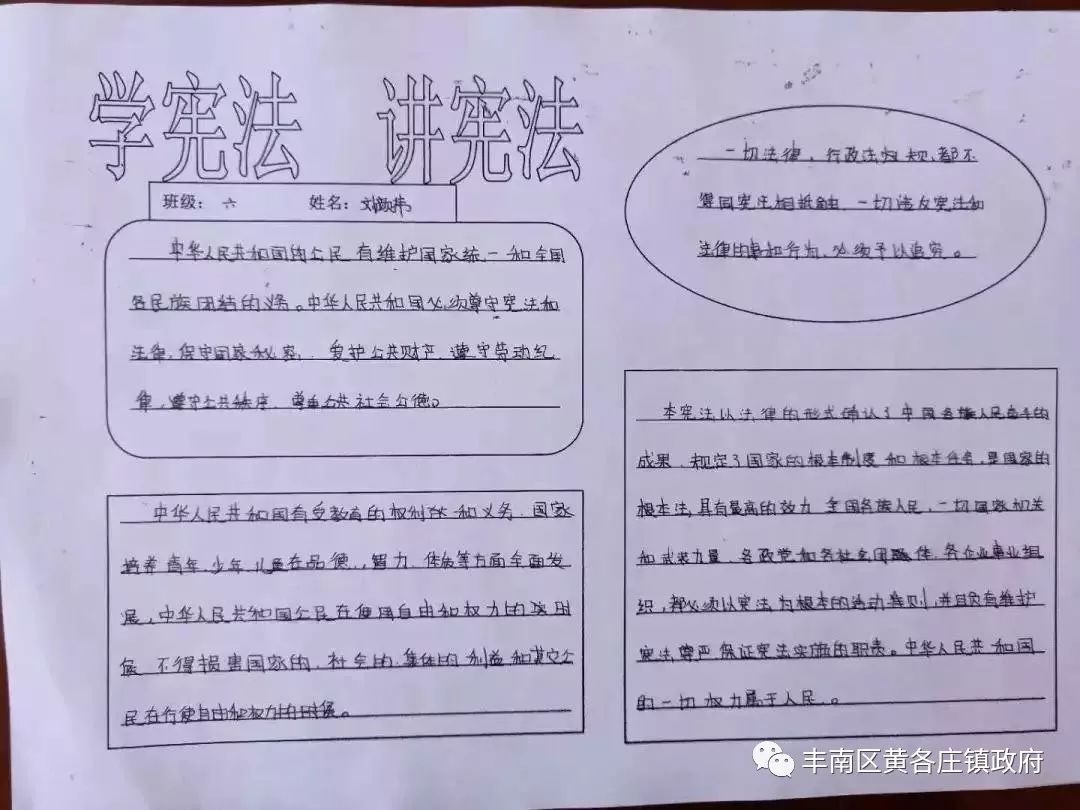 学宪法 讲宪法
班级：六 姓名：
中华人民共和国的公民 有维护国家统一和全国
各民族团结的义务。中华人民共和国必须遵守宪法和
法律，保守国家秘密，爱护公共财产 遵守劳动纪
律，遵守公共秩序、尊重公共社会公德。
中华人民共和国有受教育的权利 和义务 国家
培养青年、少年儿童在品德，智力、体质等方面全面发
展，中华人民共和国公民在使用自由和权力的 时
候 不得损害国家的、社会的、集体的利益和其它公
民在行使自由和权力的时候。
一切法律，行政法 规、都不
得同宪法相抵触、一切违反宪法和
法律的事和行为、必须予以追究。
本宪法以法律的形式确认了中国各族人民奋斗的
成果、规定了国家的根本制度和根本任务，是国家的
根本法，具有最高的效力 全国各族人民，一切国家机关
和武装力量、各政党和各社会团体，各企业事业组
织，都必须以宪法为根本的活动准则，并且负有维护
宪法尊严 保证宪法实施的职责。中华人民共和国
的一切权力属于人民。
丰南区黄各庄镇政府